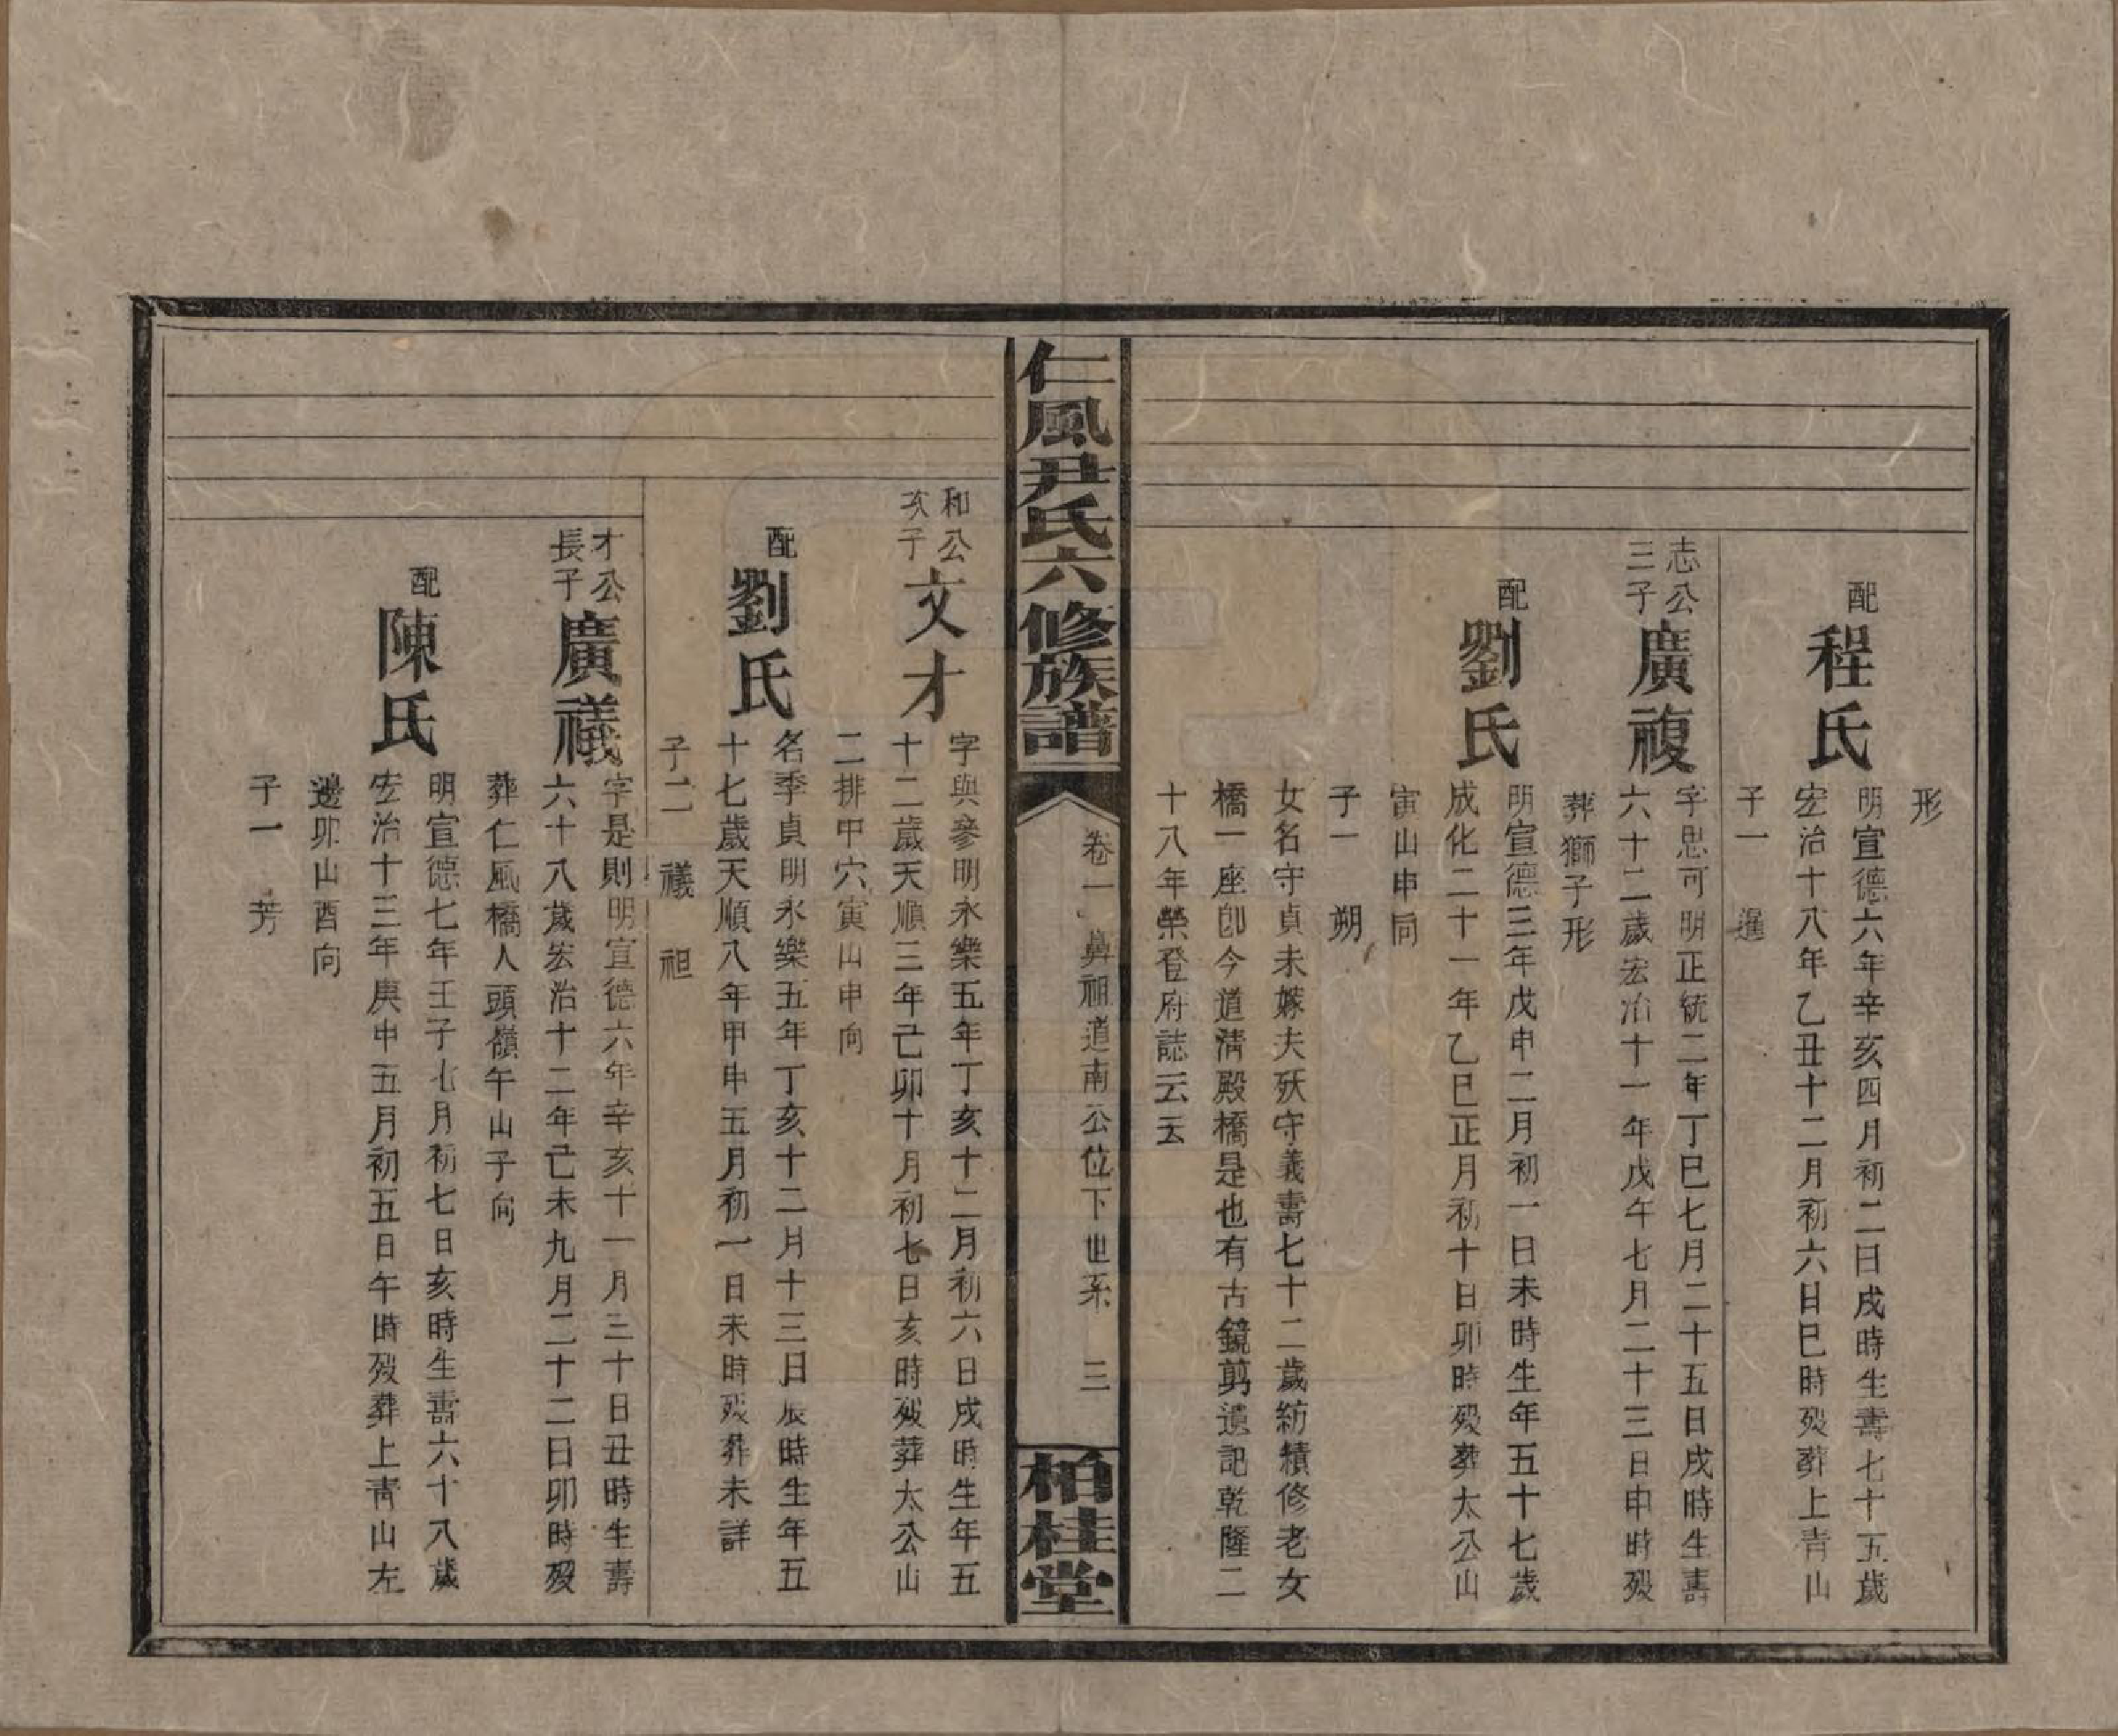 形
配
程氏
明宣德六年辛亥四月初二日戌時生壽七十五歲
宏治十八年乙丑十二月初六日巳時歿葬上青山
子一 暹
志公
三子
廣複
字思可明正統二年丁巳七月二十五日戌時生壽
六十二歲宏治十一年戊午七月二十三日申時歿
葬獅子形
配
劉氏
明宣德三年戊申二月初一日未時生年五十七歲
成化二十一年乙巳正月初十日卯時歿葬太公山
寅山申向
子一 朔
女名守貞未嫁夫殀守義壽七十二歲紡積修老女
橋一座卽今道清殿橋是也有古鏡剪遺記乾隆二
十八年榮登府誌云云
仁風尹氏六修族譜
卷一 鼻祖道南公位下世系 三
柏桂堂
和公
次子
文才
字與參明永樂五年丁亥十二月初六日戌時生年五
十二歲天順三年己卯十月初七日亥時歿葬太公山
二排甲穴寅山申向
配
劉氏
名季貞明永樂五年丁亥十二月十三日辰時生年五
十七歲天順八年甲申五月初一日未時歿葬未詳
子二 禨 祖
才公
長子
廣禨
字是則明宣德六年辛亥十一月三十日丑時生壽
六十八歲宏治十二年己未九月二十二日卯時歿
葬仁風橋人頭嶺午山子向
配
陳氏
明宣德七年壬子七月初七日亥時生壽六十八歲
宏治十三年庚申五月初五日午時歿葬上靑山左
邊卯山酉向
子一 芳